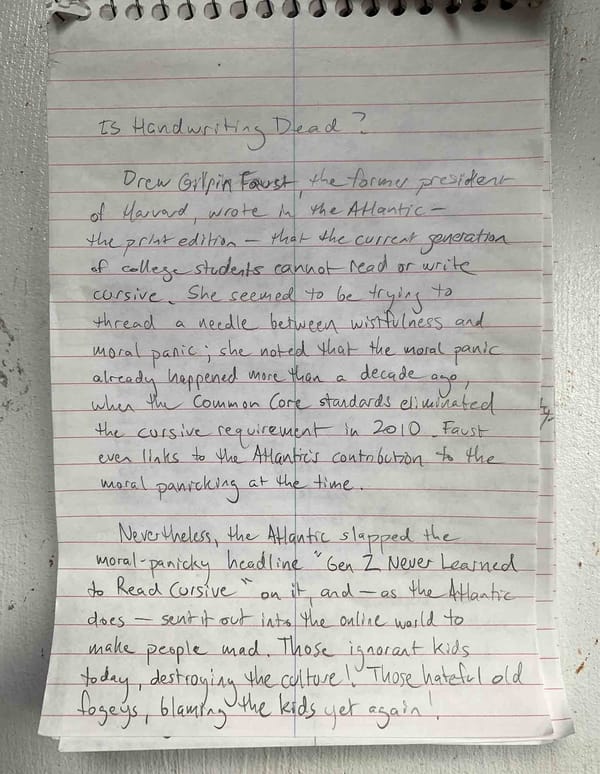 Is Handwriting Dead?
Drew Gilpin Faust, the former president
of Harvard, wrote in the Atlantic —
the print edition — that the current generation
of college students cannot read or write
cursive. She seemed to be trying to
thread a needle between wistfulness and
moral panic; she noted that the moral panic
already happened more than a decade ago,
when the Common Core standards eliminated
the cursive requirement in 2010. Faust
even links to the Atlantic's contribution to the
moral panicking at the time.
Nevertheless, the Atlantic slapped the
moral-panicky headline "Gen Z Never Learned
to Read Cursive" on it, and — as the Atlantic
does — sent it out into the online world to
make people mad. Those ignorant kids
today, destroying the culture! Those hateful old
fogeys, blaming the kids yet again!